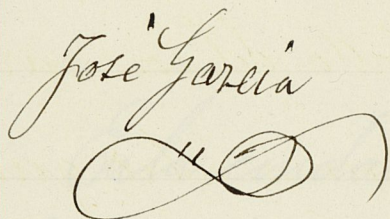 José Garcia